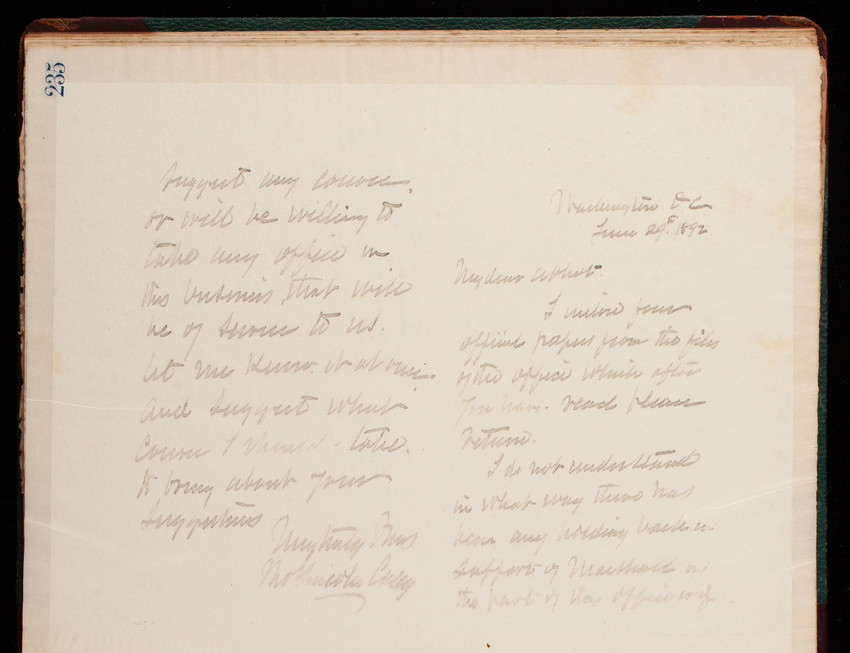 235
suggest any course
or will be willing to
take any office in
this business that will
be of service to us.
let me know it at once
and suggest what
course I should take
to bring about your
suggestions
Very truly Yours
Thos Lincoln Casey
Washington DC
June 29th 1892
My dear Abbot.
I inclose four
official papers from the files
of the office which after
you have read please
return.
I do not understand
in what way there has
been any holding back in
support of Marshall in
the part of this office